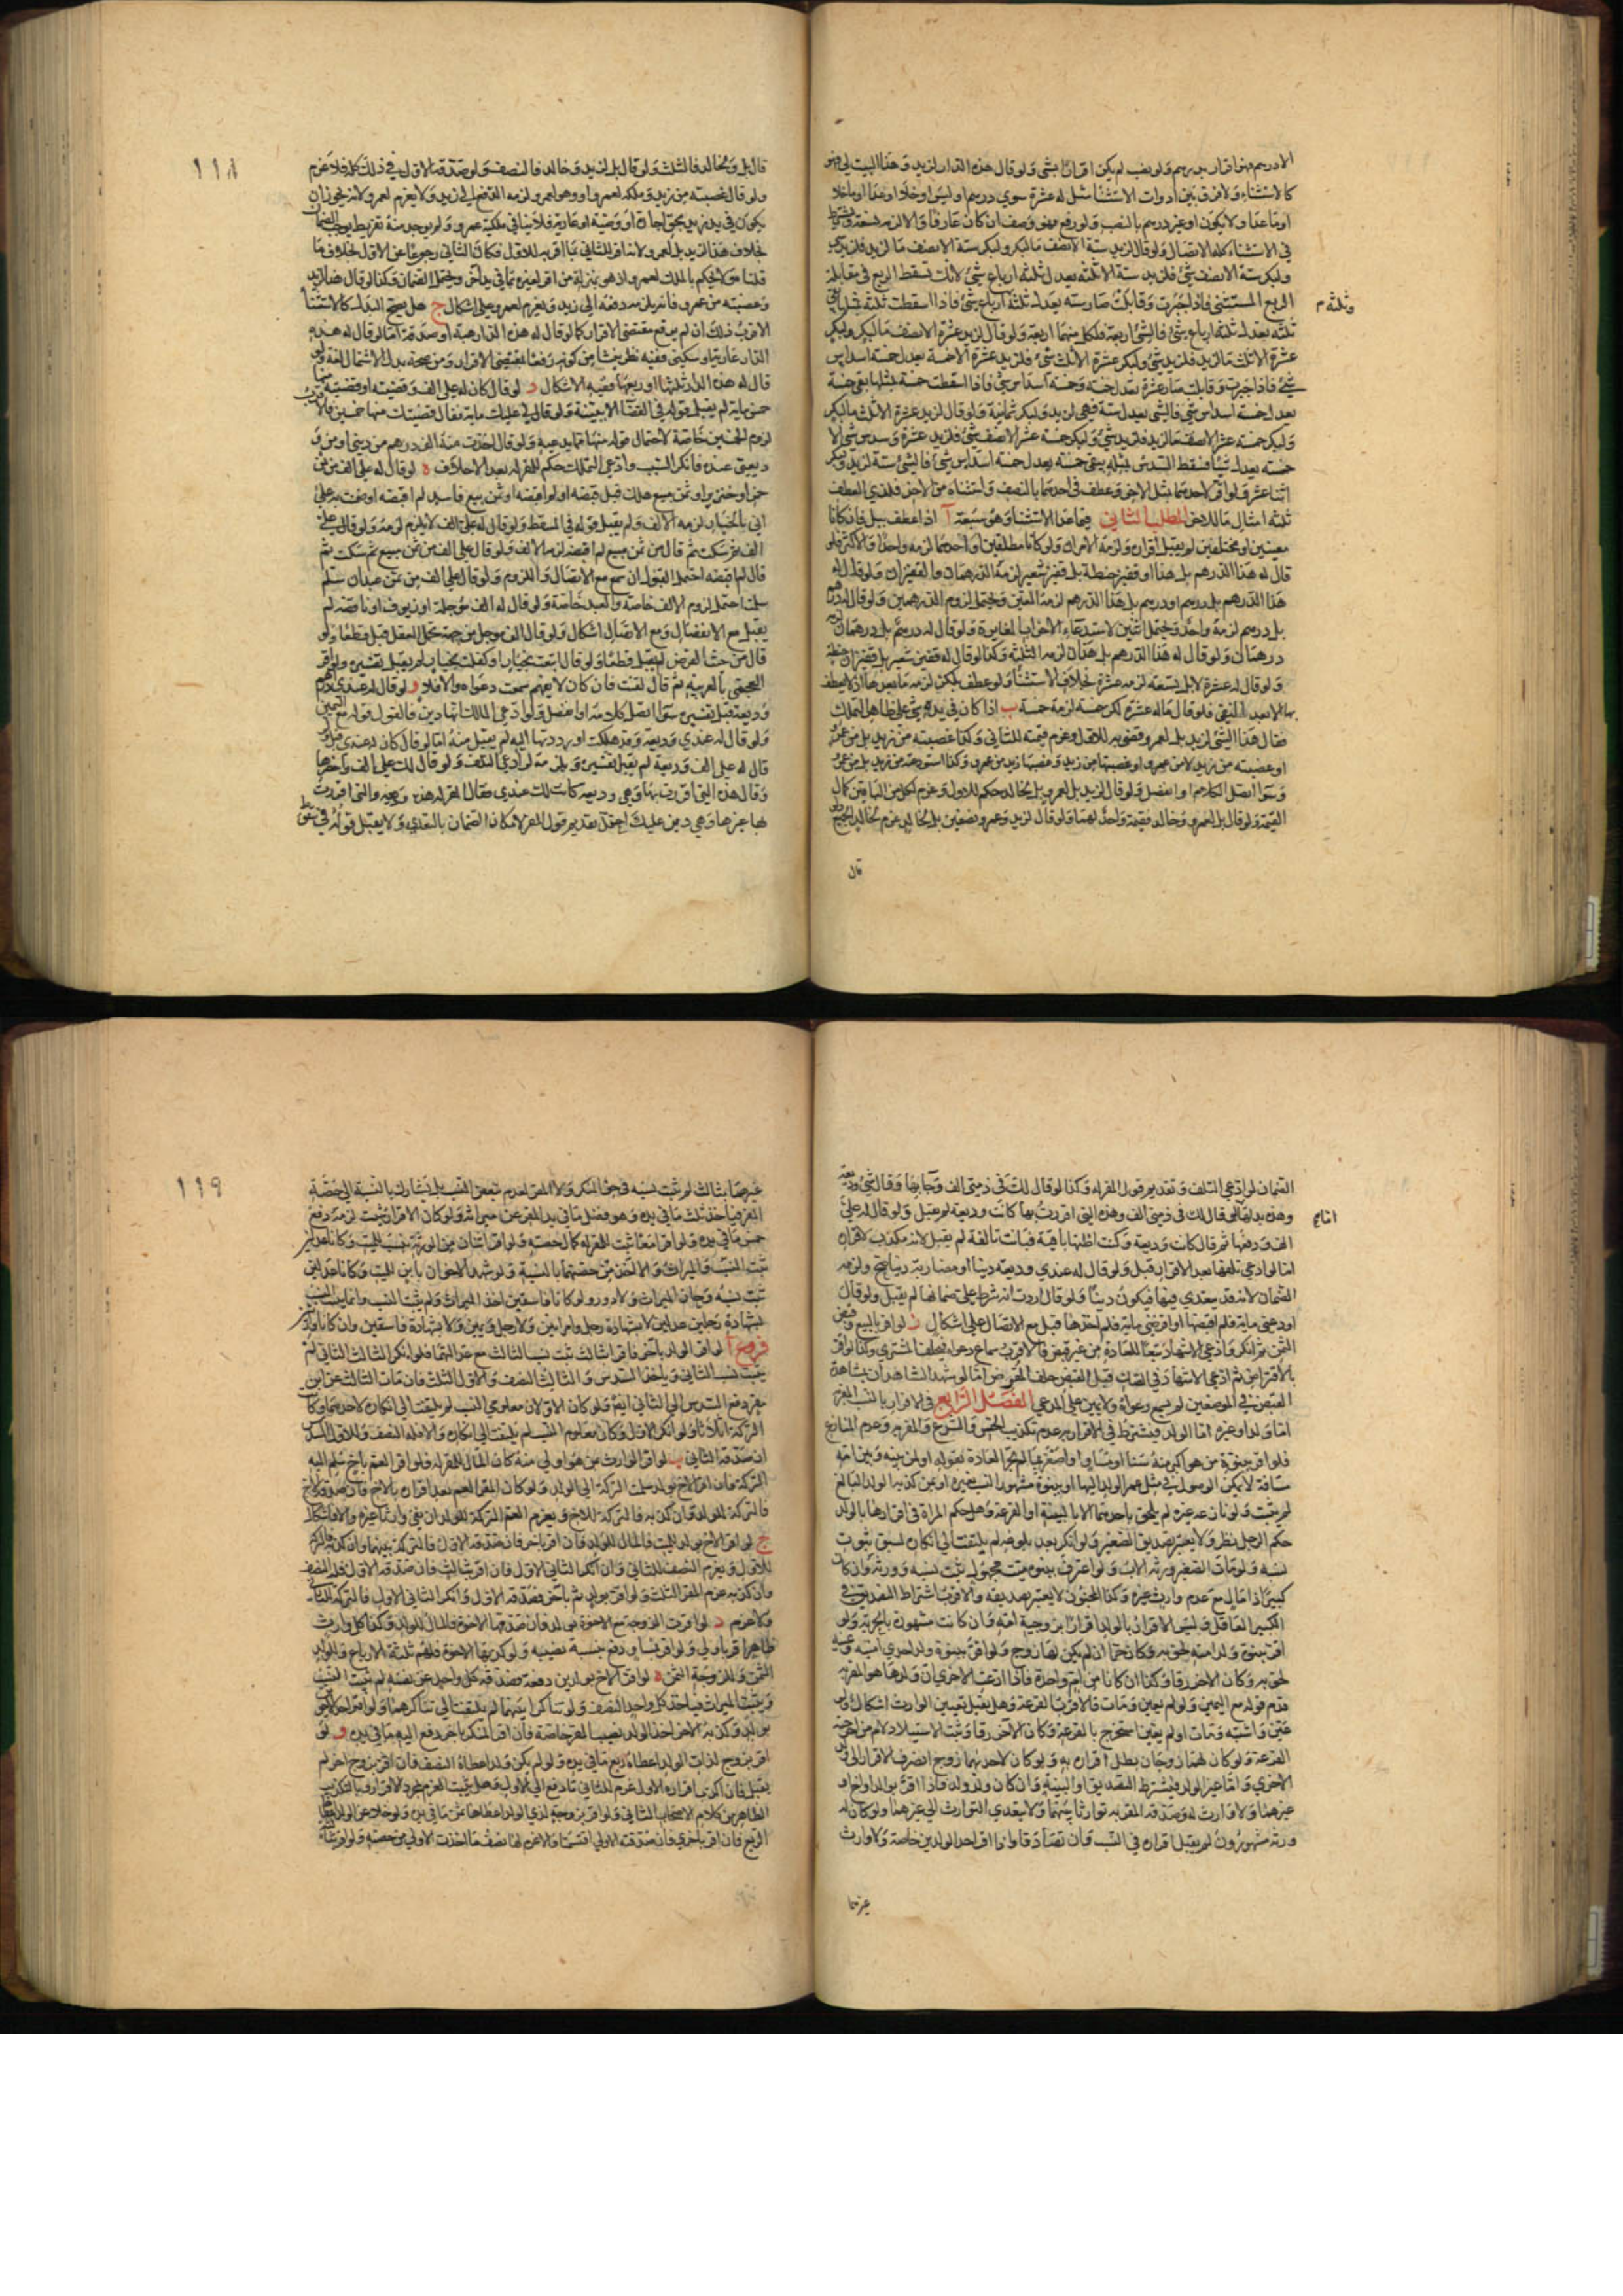 الا درهم فهو اقرار بدرهم ولو نصب لم يكن اقرارا بشئ ولو قال هذه الدار لزيد وهذا البيت لي فهو
كالاستثناء ولا فرق بين ادوات الاستثنا مثل له عشرة سوى درهم او ليس او خلا او عدا او ما خلا
او ما عدا ولا يكون او غير درهم بالنصب ولو رفع فهو وصف ان كان عارفا والا لزمه تسعة ويشترط
في الاستثناء كله الاتصال ولو قال لزيد ستة الا نصف ما لبكر ولبكر ستة الا نصف ما لزيد فلزيد شئ
ولبكر ستة الا نصف شئ فلزيد ستة الا ثلثه يعدل ثلثه ارباع شئ لانك تسقط الربع في مقابلة
الربع المستثنى فاذا جبرت وقابلت صار سته يعدل ثلثه ارباع شئ فاذا اسقطت
وثلثه م
ثلثه يعدل ثلثه ارباع شئ فالشئ اربعة فلكل منهما اربعة ولو قال لزيد عشرة الا نصف ما لبكر ولبكر
عشرة الا ثلث ما لزيد فلزيد شئ ولبكر عشرة الا ثلث شئ فلزيد عشرة الا خمسة يعدل خمسة اسداس
شئ فاذا جبرت وقابلت صار عشرة تعدل خمسه وخمسة اسداس شئ فاذا اسقطت خمسة بمثلها بقى خمسة
يعدل خمسه اسداس شئ فالشئ يعدل ستة فهى لزيد ولبكر ثمانية ولو قال لزيد عشرة الا ثلث ما لبكر
ولبكر خمسه عشر الا نصف ما لزيد فلزيد شئ ولبكر خمسة عشر الا نصف شئ فلزيد عشرة وسدس شئ الا
خمسه يعدل شيئا فيسقط السدس بمثله يبقى خمسة يعدل خمسة اسداس شئ فالشئ ستة لزيد ولبكر
اثنا عشر ولو اقر لاحدهما بمثل الاخر وعطف في احدهما بالنصف واستثناه من الاخر فلذي العطف
ثلثه امثال ما للاخر المطلب الثاني فيما عدا الاستثنا وهو سبعة آ اذا عطف ببل فان كانا
معينين او مختلفين لم يقبل اقراره ولزمه الامران ولو كانا مطلقين او احدهما لزمه واحد او الاكثر فلو
قال له هذا الدرهم بل هذا او قفيز حنطة بل قفيز شعير لزمه الدرهمان والقفيزان ولو قال له
هذا الدرهم بل درهم او درهم بل هذا الدرهم لزمه المعين ويحتمل لزوم الدرهمين ولو قال له درهم
بل درهم لزمه واحد ويحتمل اثنين لاستدعاء الاضراب المغايرة ولو قال له درهم بل درهمان لزمه
درهمان ولو قال له هذا الدرهم بل هذان لزمه الثلثة وكذا لو قال له قفيز شعير بل قفيزان حنطة
ولو قال له عشرة لا بل تسعة لزمه عشرة بخلاف الاستثناء ولو عطف بلكن لزمه ما بعدها اذ لا يعطف
بها الا بعد النفي فلو قال ماله عشرة لكن خمسة لزمه خمسة ب اذا كان في يده شئ على ظاهر التملك
فقال هذا الشئ لزيد بل لعمرو قضى به للاول وغرم قيمته للثاني وكذا غصبته من زيد بل من عمرو
او غصبته من زيد لا من عمرو او غصبتها من زيد وغصبها زيد من عمرو وكذا استودعته من زيد بل من عمرو
وسوا اتصل الكلام او انفصل ولو قال لزيد بل لعمرو بل لخالد حكم للاول وغرم لكل من الباقين كمال
القيمة ولو قال بل لعمرو وخالد فقيمة واحدة لهما ولو قال لزيد وعمرو نصفين بل لخالد غرم لخالد الجميع
قال
١١٨
قال بل ولخالد فالثلث ولو قال بل لزيد وخالد فالنصف ولو صدقه الاول في ذلك كله فلا غرم
ولو قال غصبته من زيد وملكه لعمرو او وهو لعمرو لزمه الدفع الى زيد ولا يغرم لعمرو لانه يجوز ان
يكون في يد زيد بحق اجارة او وصية او عارية فلا ينافي ملكية عمرو ولم يوجد منه تفريط يوجب الضمان
بخلاف هذا لزيد بل لعمرو لانه اقر للثاني بما اقر به للاول فكان الثاني رجوعا عن الاول بخلاف ما
قلناه ولا يحكم بالملك لعمرو اذ هو بمنزلة من اقر لغيره بما في يد اخر ويحتمل الضمان وكذا لو قال هذا لزيد
وغصبته من عمرو فانه يلزمه دفعه الى زيد ويغرم لعمرو على اشكال ج هل يصح البدل كالاستثنا
الاقرب ذلك ان لم يرفع مقتضى الاقرار كما لو قال له هذه الدار هبة او صدقة اما لو قال له هذه
الدار عارية او سكنى ففيه نظر ينشا من كونه رفعا لمقتضى الاقرار ومن صحة بدل الاشتمال لغة ولو
قال له هذه الدار ثلثها او ربعها ففيه الاشكال د لو قال كان له علي الف وقضيته او قضيته منها
خمس مائة لم يقبل قوله في القضاء الا ببينة ولو قال لي عليك مائة فقال قضيتك منها خمسين فالاقرب
لزوم الخمسين خاصة لاحتمال قوله منها مما يدعيه ولو قال اخذت منه الف درهم من ديني او من
وديعتى عنده فانكر السبب وادعى التملك حكم للمقر له بعد الاحلاف ه لو قال له على الف من ثمن
خمر او خنزير او ثمن مبيع هلك قبل قبضه او لم اقبضه او ثمن بيع فاسد لم اقبضه او ضمنت به على
انى بالخيار لزمه الالف ولم يقبل قوله في المسقط ولو قال له على الف لا يلزم لزمه ولو قال له على
الف ثم سكت ثم قال من ثمن مبيع لم اقبضه لزمه الالف ولو قال على الف من ثمن مبيع ثم سكت ثم
قال لم اقبضه احتمل القبول ان سمع مع الاتصال واللزوم ولو قال على الف من ثمن عبد ان سلم
سلمت احتمل لزوم الالف خاصة والعبد خاصة ولو قال له الف مؤجلة او زيوف او ناقصة لم
يقبل مع الانفصال ومع الاتصال اشكال ولو قال الف مؤجل من جهة تحمل العقل قبل قطعا ولو
قال من جهة القرض لم يقبل قطعا ولو قال ابتعت بخيار او كفلت بخيار لم يقبل تفسيره ولو اقر
العجمى بالعربيه ثم قال لقنت فان كان لا يفهم سمعت دعواه والا فلا و لو قال له عندي دراهم
وديعة قبل تفسيره سواء اتصل كلامه او انفصل ولو ادعى المالك انها دين فالقول قوله مع اليمين
ولو قال له عندي وديعة وقد هلكت او رددتها اليه لم يقبل منه اما لو قال كان له عندي قبل ولو
قال له علي الف وديعة لم يقبل تفسيره ويلزمه لو ادعى التلف ولو قال لك علي الف واحضرها
وقال هذه التى اقررت بها وهي وديعة كانت لك عندي فقال المقر له هذه وديعة والتى اقررت
بها غيرها وهي دين عليك احتمل تقديم قول المقر لامكان الضمان بالتعدي ولا يقبل قوله في سقوط
الضمان لو ادعى التلف وتقديم قول المقر له وكذا لو قال لك في ذمتى الف وجاء بها وقال هى وديعة
وهذه بدلها اما لو قال لك في ذمتى الف وهذه التى اقررت بها كانت وديعة لم يقبل ولو قال له على
الف ودفعها ثم قال كانت وديعة وكنت اظنها باقية فبانت تالفة لم يقبل لانه مكذب لاقراره
اما لو ادعى تلفها بعد الاقرار قبل ولو قال له عندي وديعة دينا او مضاربة دينا صح ولزمه
الضمان لانه قد يتعدى فيها فيكون دينا ولو قال اردت انه شرط على ضمانها لم يقبل ولو قال
اودعنى مائة فلم اقبضها او اقرضني مائة فلم اخذها قبل مع الاتصال على اشكال ز لو اقر بالبيع وقبض
الثمن ثم انكر وادعى الاشهاد تبعا للعادة من غير قبض فالاقرب سماع دعواه فيحلف المشتري وكذا لو اقر
بالاقتراض ثم ادعى الاشهاد في الصك قبل القبض حلف المقرض اما لو شهد الشاهدان بمشاهدة
القبض في الموضعين لم يسمع دعواه ولا يمين على المدعي الفصل الرابع في الاقرار بالنسب المقر به
اما ولد او غيره اما الولد فيشترط في الاقرار به عدم تكذيب الحس والشرع والمقر به وعدم المنازع
فلو اقر ببنوة من هو اكبر منه سنا او مساويا او اصغر بما لم تجر العادة بتولده او لمن بينه وبين امه
مسافة لا يمكن الوصول في مثل عمر الولد اليها او ببنوة مشهور النسب بغيره او من كذبه الولد البالغ
لم يثبت ولو نازعه غيره لم يلحق باحدهما الا بالبينة او القرعة وهل حكم المراة في اقرارها بالولد
حكم الرجل نظر ولا يعتبر تصديق الصغير ولو انكر بعد بلوغه لم يلتفت الى انكاره لسبق ثبوت
نسبه ولو مات الصغير ورثه الاب ولو اعترف ببنوة ميت مجهول ثبت نسبه وورثه وان كان
كبيرا ذا مال مع عدم وارث غيره وكذا المجنون لا يعتبر تصديقه والاقرب اشتراط التصديق في
الكبير العاقل وليس الاقرار بالولد اقرارا بزوجية امه وان كانت مشهورة بالحرية ولو
اقر ببنوة ولد امته لحق به وكان حرا ان لم يكن لها زوج ولو اقر ببنوة ولد احدى امتيه وعينه
لحق به وكان الاخر رقا وكذا ان كانا من ام واحدة فاذا ادعت الاخرى ان ولدها هو المقر به
قدم قوله مع اليمين ولو لم يعين ومات فالاقرب القرعة وهل يقبل تعيين الوارث اشكال ولو
عين واشتبه ومات او لم يعين استخرج بالقرعة وكان الاخر رقا وثبت الاستيلاد لام من اخرجته
القرعة ولو كان لهما زوجان بطل اقراره به ولو كان لاحدهما زوج انصرف الاقرار الى ولد
الاخرى واما غير الولد فيشترط التصديق او البينة وان كان ولد ولد فاذا اقر بوالد او اخ او
غيرهما ولا وارث له وصدقه المقر به توارثا بينهما ولا يتعدى التوارث الى غيرهما ولو كان له
ورثه مشهورون لم يقبل اقراره في النسب وان تصادقا واذا اقر احد الولدين خاصة ولا وارث
غيرهما
١١٩
غيرهما بثالث لم يثبت نسبه في حق المنكر ولا المقر لعدم تبعض النسب بل يشارك بالنسبة الى حصة
المقر فياخذ ثلث ما في يده وهو فضل ما في يد المقر عن ميراثه ولو كان الاقرار ببنت لزمه دفع
خمس ما في يده ولو اقرا معا ثبت للمقر له كمال حصته ولو اقر اثنان من الورثة بنسب للميت وكانا عدلين
ثبت النسب والميراث والا اخذ من حصتهما بالنسبة ولو شهد الاخوان بابن للميت وكانا عدلين
ثبت نسبه وحاز الميراث ولا دور ولو كانا فاسقين اخذ الميراث ولم يثبت النسب وانما يثبت النسب
بشهادة رجلين عدلين لا بشهادة رجل وامراتين ولا رجل ويمين ولا بشهادة فاسقين وان كانا وارثين
فروع آ لو اقر الولد باخر فاقرا بثالث ثبت نسب الثالث مع عدالتهما فلو انكر الثالث الثاني لم
يثبت نسب الثاني وياخذ السدس والثالث النصف والاول الثلث فان مات الثالث عن ابن
مقر دفع السدس الى الثاني ايضا ولو كان الاولان معلومي النسب لم يلتفت الى انكاره لاحدهما وكانت
التركة اثلاثا ولو انكر الاول وكان معلوم النسب لم يلتفت الى انكاره والا فله النصف وللاول السدس
ان صدقه الثاني ب لو اقر الوارث بمن هو اولى منه كان المال للمقر له فلو اقر العم باخ سلم اليه
التركة فان اقر الاخ بولد سلمت التركة الى الولد ولو كان المقر العم بعد اقراره بالاخ فان صدقه الاخ
فالتركة للولد وان كذبه فالتركة للاخ ويغرم العم التركة للولد ان نفى وارثا غيره والا فاشكال
ج لو اقر الاخ بولد للميت فالمال للولد فان اقر باخر فان صدقه الاول فالتركة بينهما وان كذبه فالتركة
للاول ويغرم النصف للثاني وان انكر الثاني الاول فان اقر بثالث فان صدقه الاول فله النصف
وان كذبه غرم المقر الثلث ولو اقر بولد ثم باخر فصدقه الاول وانكر الثاني الاول فالتركة للثاني
ولا غرم د لو اقرت الزوجة مع الاخوة بولد فان صدقها الاخوة فالمال للولد وكذا كل وارث
ظاهرا اقر باولى ولو اقر بمساو دفع بنسبة نصيبه ولو كذبها الاخوة فلهم ثلثة الارباع وللولد
الثمن وللزوجة الثمن ه لو اقر الاخ بولدين دفعة فصدقه كل واحد عن نفسه لم يثبت النسب
ويثبت الميراث فياخذ كل واحد النصف ولو تناكرا بينهما لم يلتفت الى تناكرهما ولو اقر احد الاخوين
بولد وكذبه الاخر اخذ الولد نصيب المقر خاصة فان اقر المنكر باخر دفع اليه ما في يده و لو
اقر بزوج لذات الولد اعطاه ربع ما في يده ولو لم يكن ولد اعطاه النصف فان اقر بزوج اخر لم
يقبل فان اكذب اقراره الاول غرم للثاني ما دفع الى الاول وهل يثبت الغرم بمجرد الاقرار او بالتكذيب
الظاهر من كلام الاصحاب الثاني ولو اقر بزوجة لذي الولد اعطاها ثمن ما في يده ولو خلا عن الولد اعطاها
الربع فان اقر باخرى فان صدقته الاولى اقتسمتا والا غرم لها نصف ما اخذت الاولى من حصته ولو اقر بثالثة